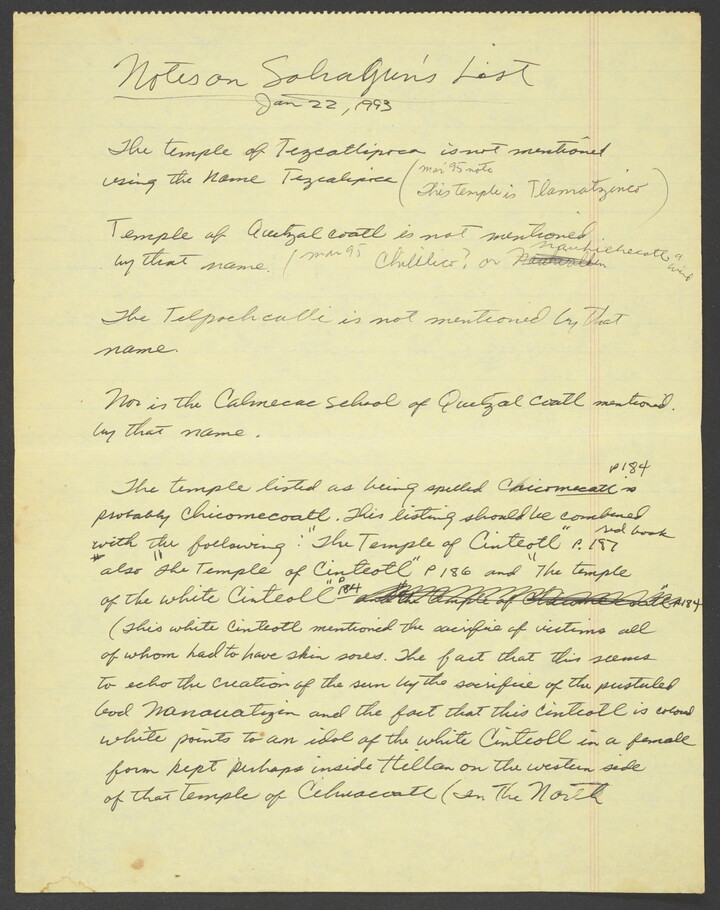 Notes on Sahagun's List
Jan 22, 1993
The temple of Tezcatlipoca is not mentioned
using the Name Tezcalipoca (mar 95 note
This temple is Tlamatzinco)
Temple of Quetzal coatl is not mentioned
by that name. (mar 95 Chililico? or nauhiehecatl a
wind
The Telpochcalli is not mentioned by that
name.
Nor is the Calmecac School of Quetzal coatl mentioned.
by that name.
p 184
The temple listed as being spelled Chicomecatl is
probably Chicomecoatl. This listing should be combined
red book
with the following: "The Temple of Cinteotl" P. 187
also "The Temple of Cinteotl" P 186 and "The temple
of the white Cinteotl" P 184 and the temple of P 184
(This white Cinteotl mentioned the sacrifice of victims all
of whom had to have skin sores. The fact that this seems
to echo the creation of the sun by the sacrifice of the pustuled
God Nanauatzin and the fact that this Cinteotl is colored
white points to an idol of the white Cinteotl in a female
form kept perhaps inside Hellan on the western side
of that temple of Cihuacoatl (in the North